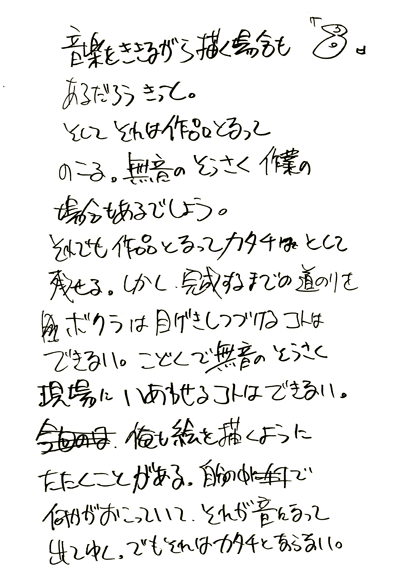 音楽をききながら描く場合も 『8』
あるだろうきっと。
そして それは作品となって
のこる。無音の そうさく 作業の
場合もあるでしょう。
それでも作品となってカタチとして
残せる。しかし、完成するまでの道のりを
ボクラは目げきしつづけるコトは
できない。こどくで無音の そうさく
現場に いあわせるコトはできない。
俺も絵を描くように
たたくことがある。自分の中で
何かがおこっていて、それが音になって
出てゆく。でもそれはカタチとならない。